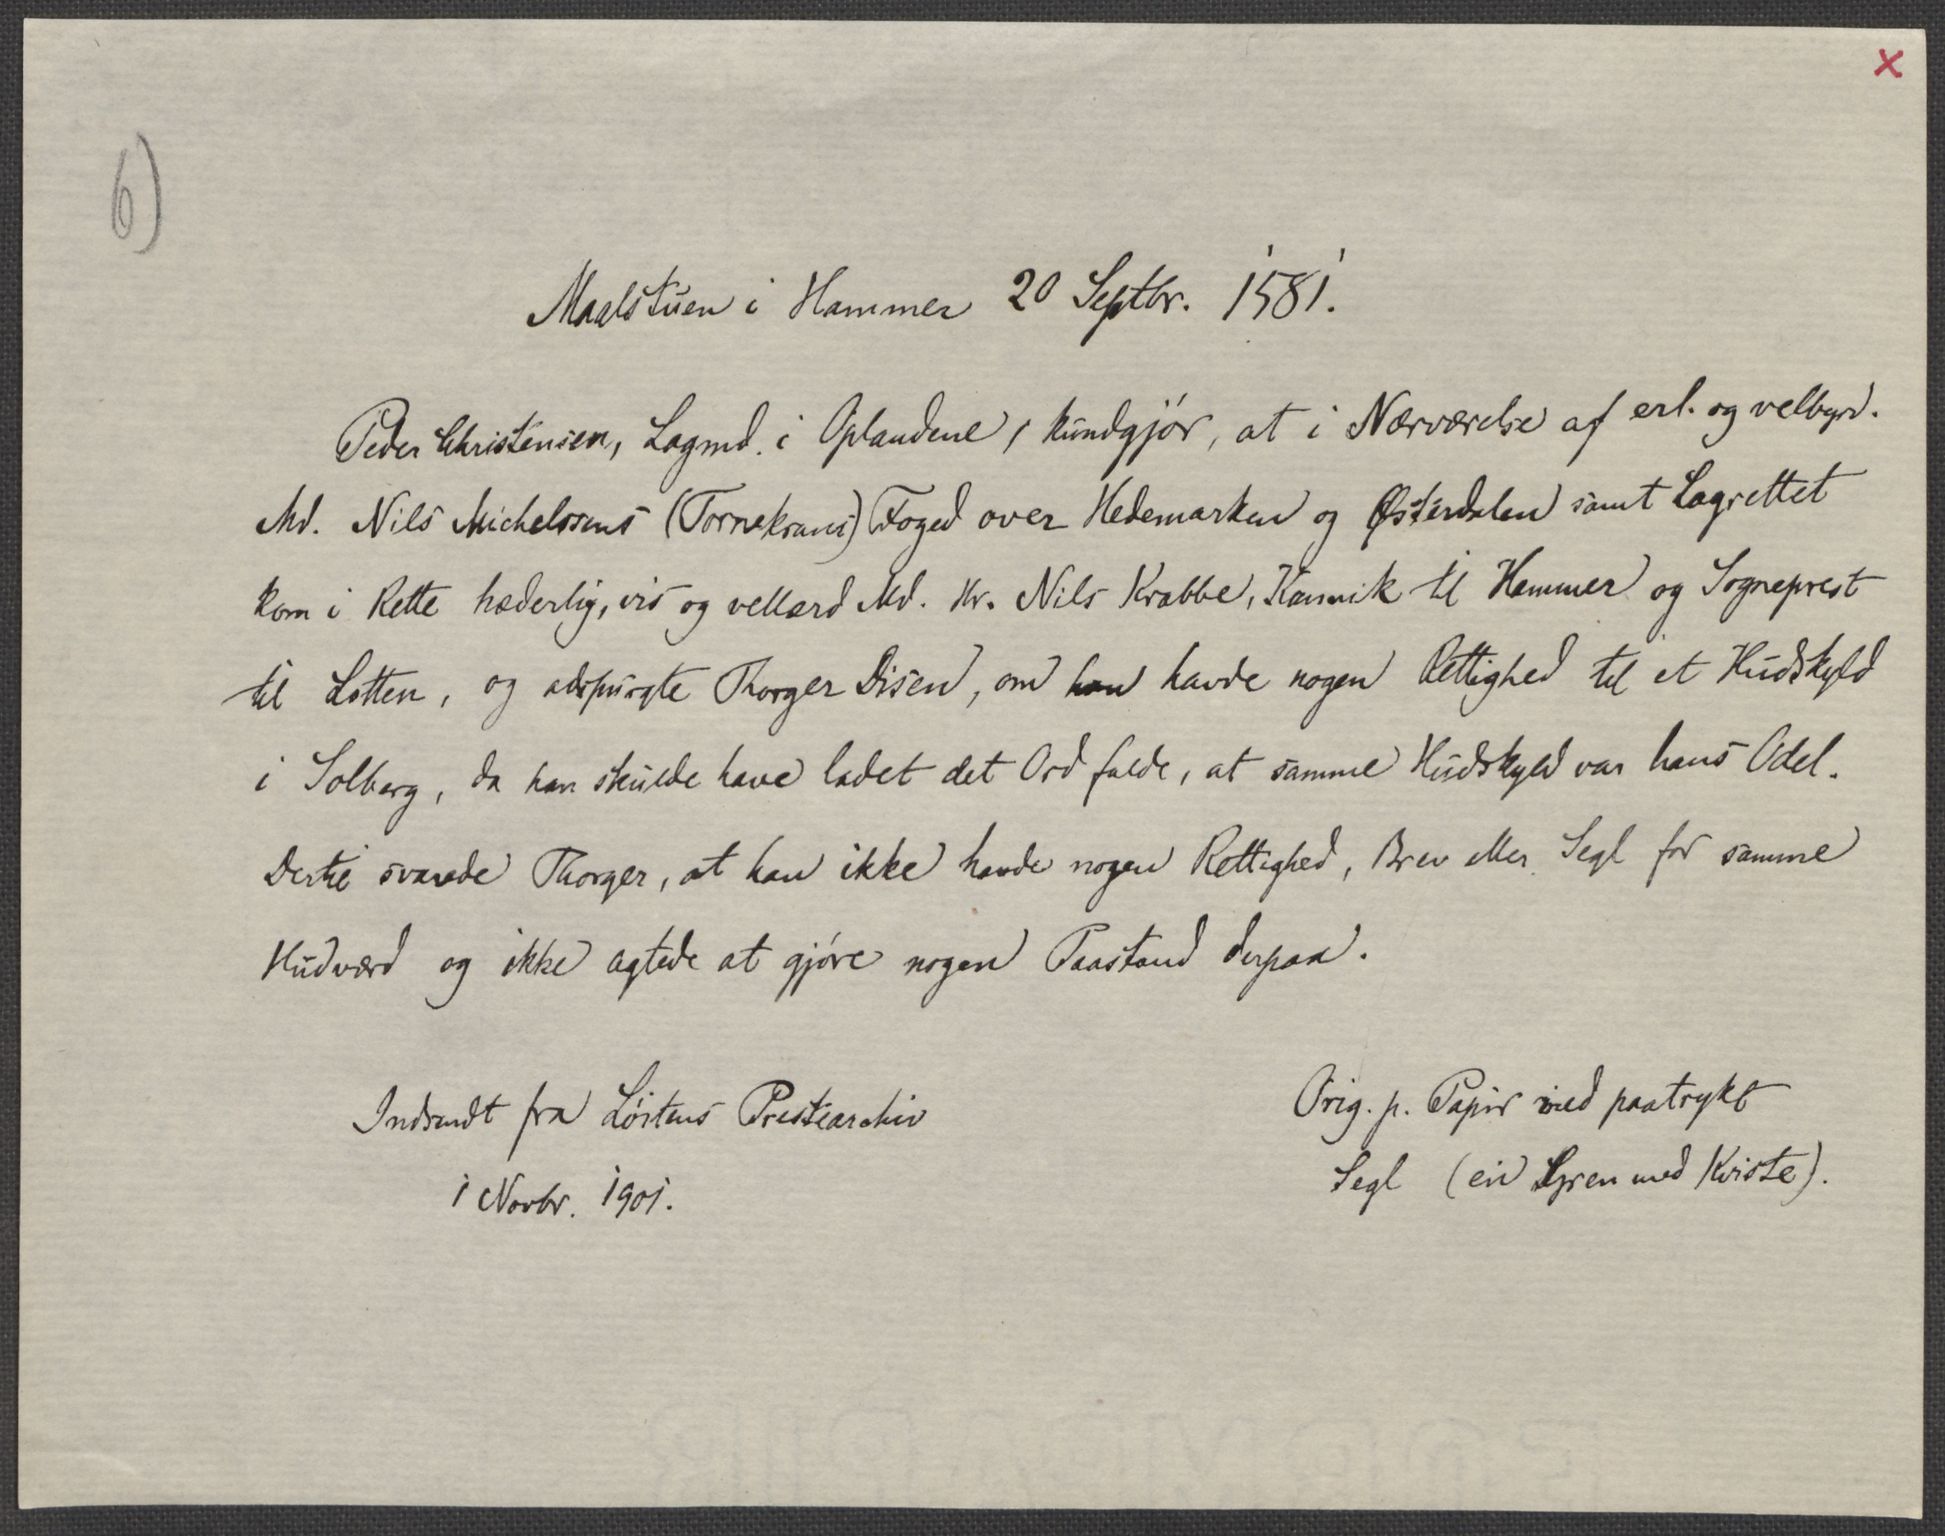 x
6)
Maalstuen i Hammer 20 Septbr. 1581.
Peder Christensen, Lagmd. i Oplandene, kundgjör, at i Nærværelse af erl. og velbyrd.
Md. Nils Michelssens (Tornekrans) Foged over Hedemarken og Østerdalen samt Lagrettet
kom i Rette hæderlig, vis og vellærd Md. Hr. Nils Krabbe, Kannik til Hammer og Sogneprest
til Lötten, og adspurgte Thorger Disen, om han havde nogen Rettighed til et Hudskyld
i Solberg, da han skulde have ladet det Ord falde, at samme Hudskyld var hans Odel.
Dertil svarede Thorger, at han ikke havde nogen Rettighed, Brev eller Segl for samme
Hudværd og ikke agtede at gjöre nogen Paastand derpaa.
Indsendt fra Löitens Prestearchiv
i Novbr. 1901.
Orig. p. Papir med paatrykt
Segl (en Gren med Kviste).